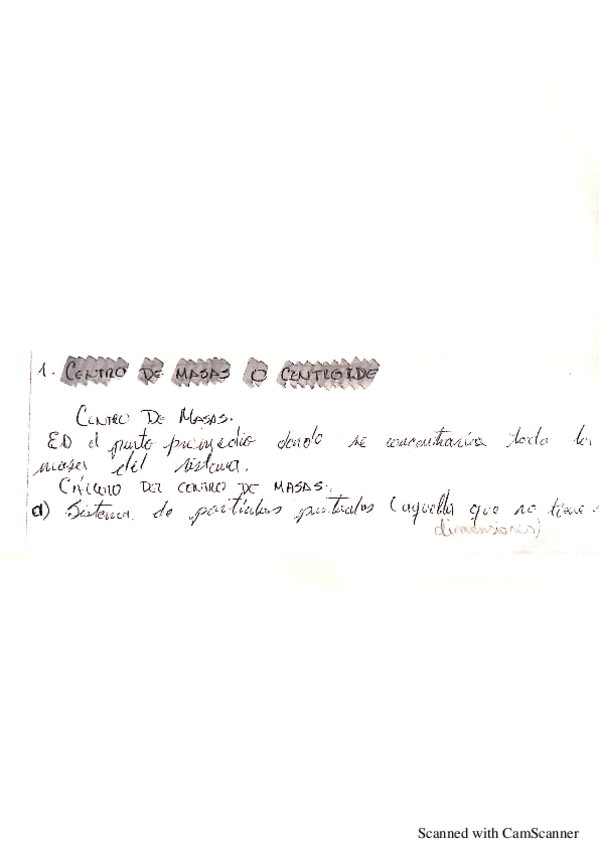 1. CENTRO DE MASAS O CENTROIDE
CENTRO DE MASAS.
ES el punto promedio donde se concentraría toda la
masa del sistema.
CÁLCULO DEL CENTRO DE MASAS.
a) Sistema de partículas puntuales (aquella que no tiene
dimensiones)
Scanned with CamScanner